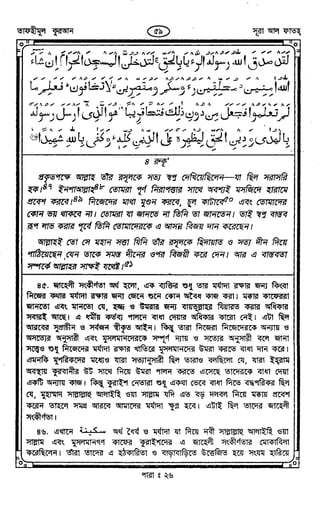 তাফহীমুল কুরআন
৫৯
সূরা আল ফাতহ
لَقَدْ صَدَقَ اللهُ رَسُولَهُ الرُّءْيَا بِالْحَقِّ ۚ لَتَدْخُلُنَّ الْمَسْجِدَ الْحَرَامَ إِنْ شَاءَ
اللهُ آمِنِينَ ۙ مُحَلِّقِينَ رُءُوسَكُمْ وَمُقَصِّرِينَ ۙ لَا تَخَافُونَ ۖ فَعَلِمَ مَا
لَمْ تَعْلَمُوا فَجَعَلَ مِنْ دُونِ ذَٰلِكَ فَتْحًا قَرِيبًا ۞ هُوَ الَّذِي أَرْسَلَ رَسُولَهُ
بِالْهُدَىٰ وَدِينِ الْحَقِّ لِيُظْهِرَهُ عَلَى الدِّينِ كُلِّهِ ۚ وَكَفَىٰ بِاللهِ شَهِيدًا ۞
৪ রুকূ'
প্রকৃতপক্ষে আল্লাহ তাঁর রসূলকে সত্য স্বপ্ন দেখিয়েছিলেন—যা ছিল সরাসরি
হক।৪৭ ইনশাআল্লাহ৪৮ তোমরা পূর্ণ নিরাপত্তার সাথে অবশ্যই মসজিদে হারামে
প্রবেশ করবে।৪৯ নিজেদের মাথা মুণ্ডন করবে, চুল কাটাবে৫০ এবং তোমাদের
কোন ভয় থাকবে না। তোমরা যা জানতে না তিনি তা জানতেন। তাই স্বপ্ন বাস্তব
রূপ লাভ করার পূর্বে তিনি তোমাদেরকে এ আসন্ন বিজয় দান করেছেন।
আল্লাহই তো সে মহান সত্তা যিনি তাঁর রসূলকে হিদায়াত ও সত্য দীন দিয়ে
পাঠিয়েছেন যেন তাকে সমস্ত দীনের ওপর বিজয়ী করে দেন। আর এ বাস্তবতা
সম্পর্কে আল্লাহর সাক্ষই যথেষ্ট।৫১
৪৫. জাহেলী সংকীর্ণতা অর্থ হলো, এক ব্যক্তির শুধু তার মর্যাদা রক্ষার জন্য কিংবা
নিজের কথার মর্যাদা রক্ষার জন্য জেনে শুনে কোন অবৈধ কাজ করা। মক্কার কাফেররা
জানতো এবং মানতো যে, হজ্জ ও উমরার জন্য বায়তুল্লাহর যিয়ারত করার অধিকার
সবারই আছে। এ ধর্মীয় কর্তব্য পালনে বাধা দেয়ার অধিকার কারো নেই। এটা ছিল
আরবের সুপ্রাচীন ও সর্বজন স্বীকৃত আইন। কিন্তু তারা নিজেরা নিজেদেরকে অন্যায় ও
অসত্যের অনুসারী এবং মুসলমানদেরকে সম্পূর্ণ ন্যায় ও সত্যের অনুসারী বলে জানা
সত্ত্বেও শুধু নিজেদের মর্যাদা রক্ষার খাতিরে মুসলমানদের উমরা করতে বাধা দান করে।
এমনকি মুশরিকদের মধ্যেও যারা সত্যানুসারী ছিল তারাও বলছিলো যে, যারা ইহরাম
অবস্থায় কুরবানীর উট সাথে নিয়ে উমরা পালন করতে এসেছে তাদেরকে বাধা দেয়া
একটি অন্যায় কাজ। কিন্তু কুরাইশ নেতারা শুধু একথা ভেবে বাধা দিতে বদ্ধপরিকর ছিল
যে, মুহাম্মাদ সাল্লাল্লাহু আলাইহি ওয়া সাল্লাম যদি এত বড় দলবল নিয়ে মক্কায় প্রবেশ
করেন তাহলে সমগ্র আরবে আমাদের মর্যাদা ক্ষুণ্ণ হবে। এটাই ছিল তাদের জাহেলী
সংকীর্ণতা।
৪৬. এখানে سكينة অর্থ ধৈর্য ও মর্যাদা যা দিয়ে নবী সাল্লাল্লাহু আলাইহি ওয়া
সাল্লাম এবং মুসলমানগণ কাফের কুরাইশদের এ জাহেলী সংকীর্ণতার মোকাবিলা
করেছিলেন। তাঁরা তাদের এ হঠকারিতা ও বাড়াবাড়িতে উত্তেজিত হয়ে সংযম হারিয়ে
পারা ঃ ২৬